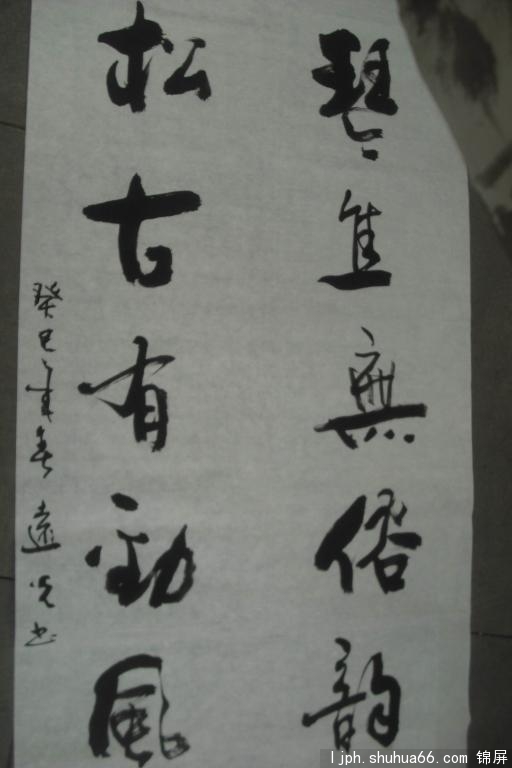 琴焦無俗韵
松古有勁風
癸巳年春遠光书
ljph.shuhua66.com 锦屏